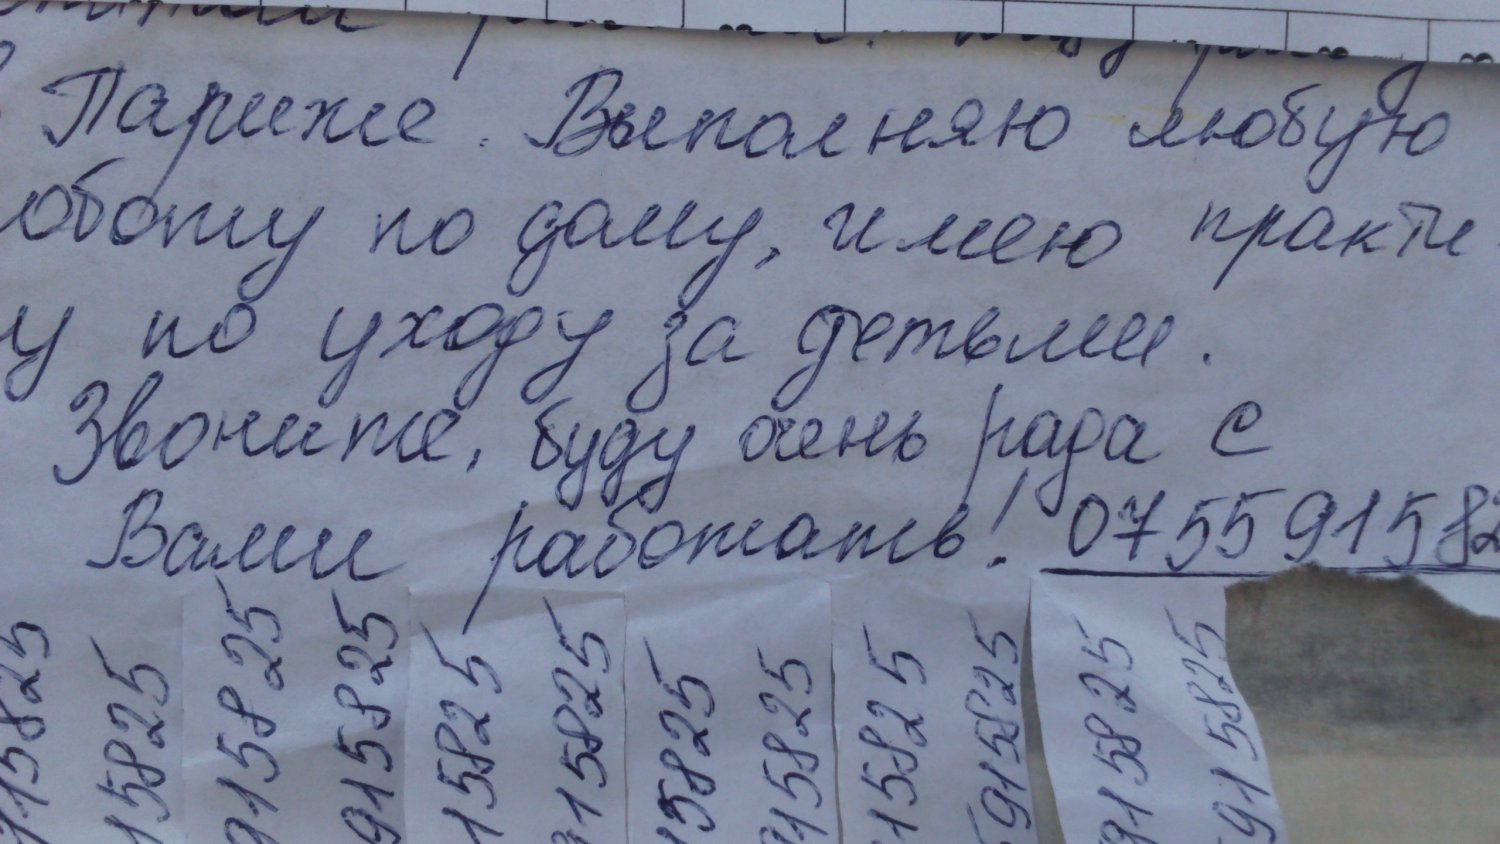 Париже. Выполняю любую
оботу по дому, имею практи
у по уходу за детьми.
Звоните, буду очень рада с
Вами работать! 075591582
115825
15825
915825
915825
15825
15825
15825
915825
15825
5915825
915825
5915825